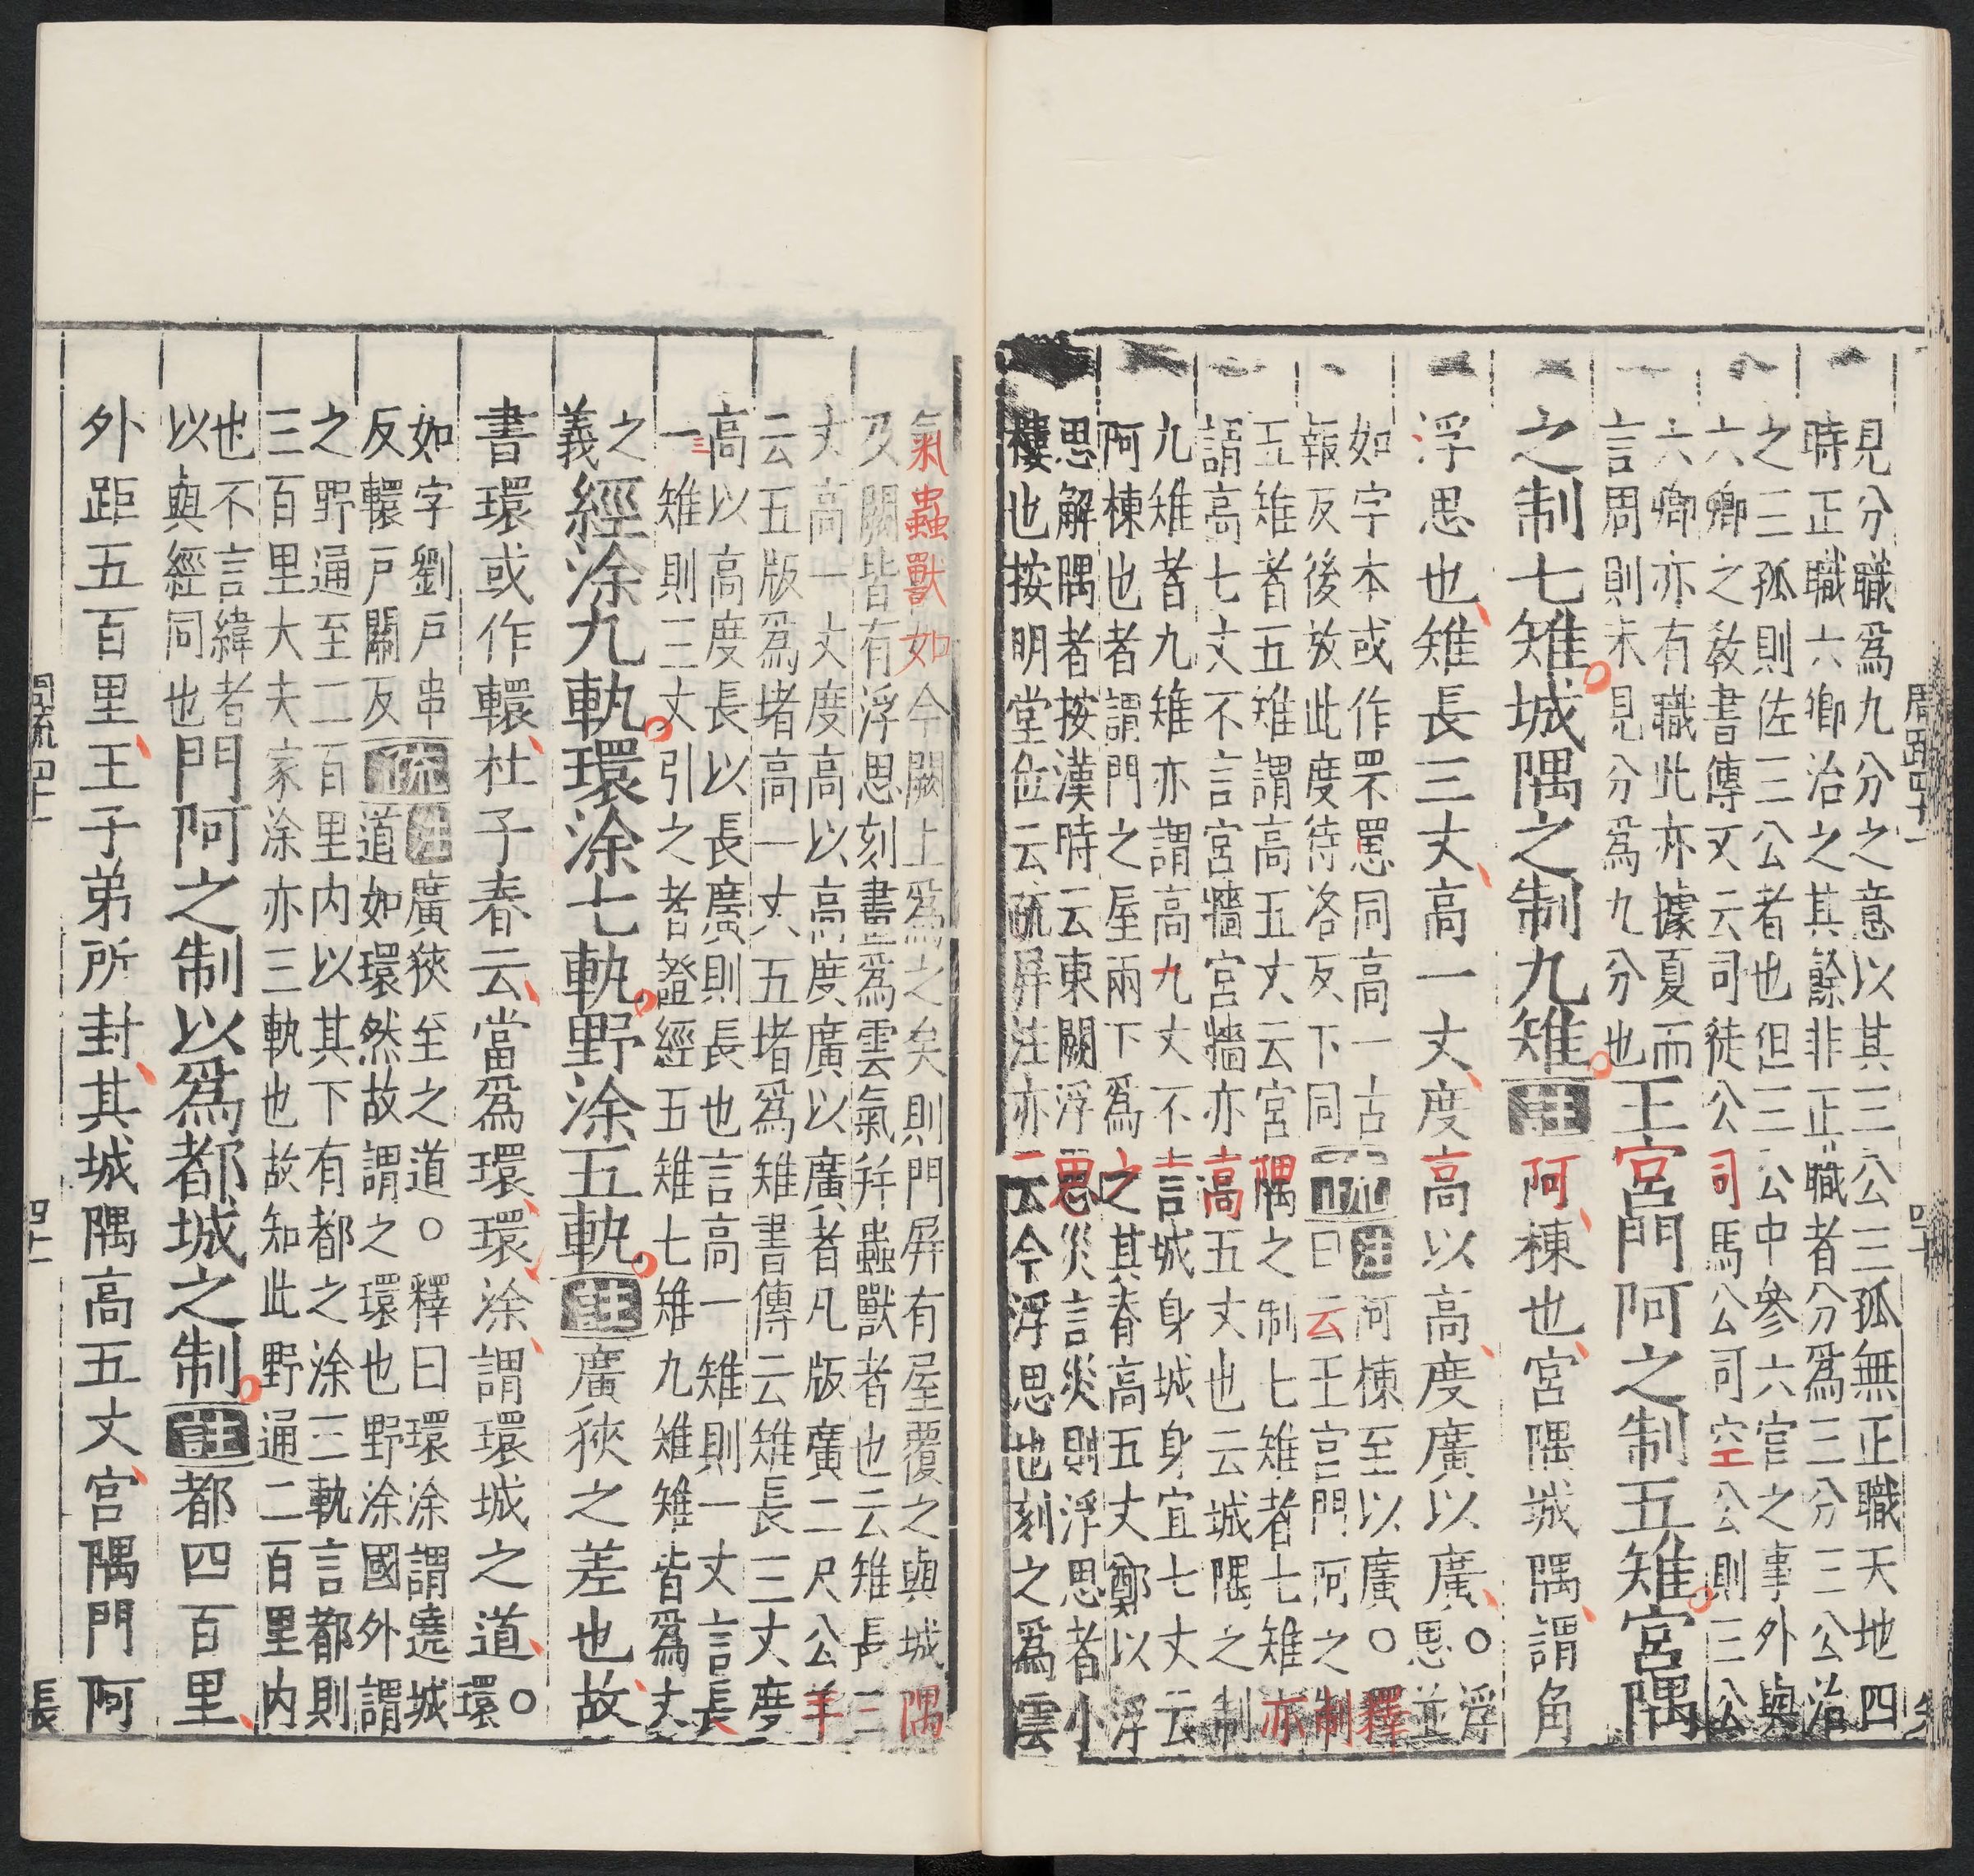 周疏四十一
四十
見分職爲九分之意以其三公三孤無正職天地四
時正職六卿治之其餘非正職者分爲三分三公治
之三孤則佐三公者也但三公中參六官之事外與
六卿之教書傳文云司徒公司馬公司空公則三公
六卿亦有職此亦據夏而
言周則未見分爲九分也
王宮門阿之制五雉宮隅
之制七雉城隅之制九雉註阿棟也宮隅城隅謂角
浮思也雉長三丈高一丈度高以高度廣以廣○浮
思並
如字本或作罘罳同高一古
報反後放此度待洛反下同
疏注阿棟至以廣○釋
曰云王宮門阿之制
五雉者五雉謂高五丈云宮隅之制七雉者七雉亦
謂高七丈不言宮牆宮牆亦高五丈也云城隅之制
九雉者九雉亦謂高九丈不言城身城身宜七丈云
阿棟也者謂門之屋兩下爲之其脊高五丈鄭以浮
思解隅者按漢時云東闕浮思災言災則浮思者小
樓也按明堂位云疏屏注亦云今浮思也刻之爲雲
氣蟲獸如今闕上爲之矣則門屏有屋覆之與城隅
及闕皆有浮思刻畫爲雲氣并蟲獸者也云雉長三
丈高一丈度高以高度廣以廣者凡版廣二尺公羊
云五版爲堵高一丈五堵爲雉書傳云雉長三丈度
高以高度長以長廣則長也言高一雉則一丈言長
一雉則三丈引之者證經五雉七雉九雉雉皆爲丈
之
義
經涂九軌環涂七軌野涂五軌註廣狹之差也故
書環或作轘杜子春云當爲環環涂謂環城之道○
環
如字劉戶串
反轘戶關反
疏注廣狹至之道○釋曰環涂謂遶城
道如環然故謂之環也野涂國外謂
之野通至二百里内以其下有都之涂三軌言都則
三百里大夫家涂亦三軌也故知此野通二百里内
也不言緯者
以與經同也
門阿之制以爲都城之制註都四百里
外距五百里王子弟所封其城隅高五丈宮隅門阿
周疏四十一
四十一
長